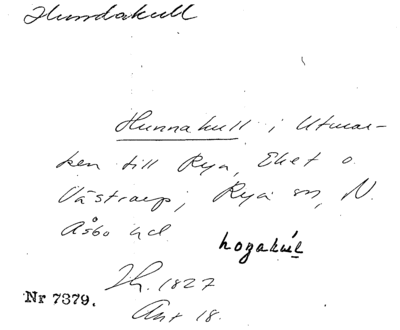 Hundakull
Hunnakull i Utmar-
ken till Rya, Eket o.
Västraup, Rya sn, N.
Åsbo hd
Jh. 1827
Nr 7379.
Akt 18.